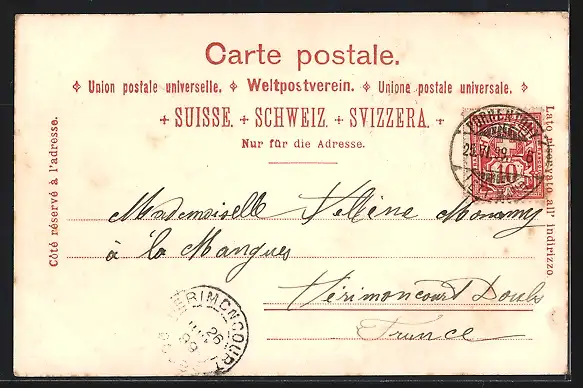 Carte postale.
Union postale universelle. Weltpostverein. Unione postale universale.
+ SUISSE. + SCHWEIZ. + SVIZZERA. +
Nur für die Adresse.
Côté réservé à l'adresse.
Lato riservato all' indirizzo
10
Mademoiselle Hélène
à la Mangues
Hérimoncourt Doubs
France
HERIMONCOURT
26
99